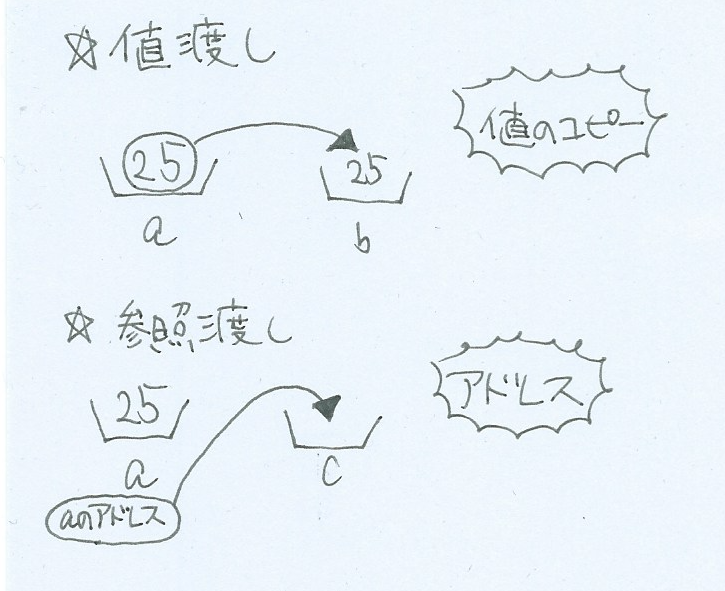 ☆値渡し
値のコピー
25
25
a
b
☆参照渡し
アドレス
25
a
c
aのアドレス